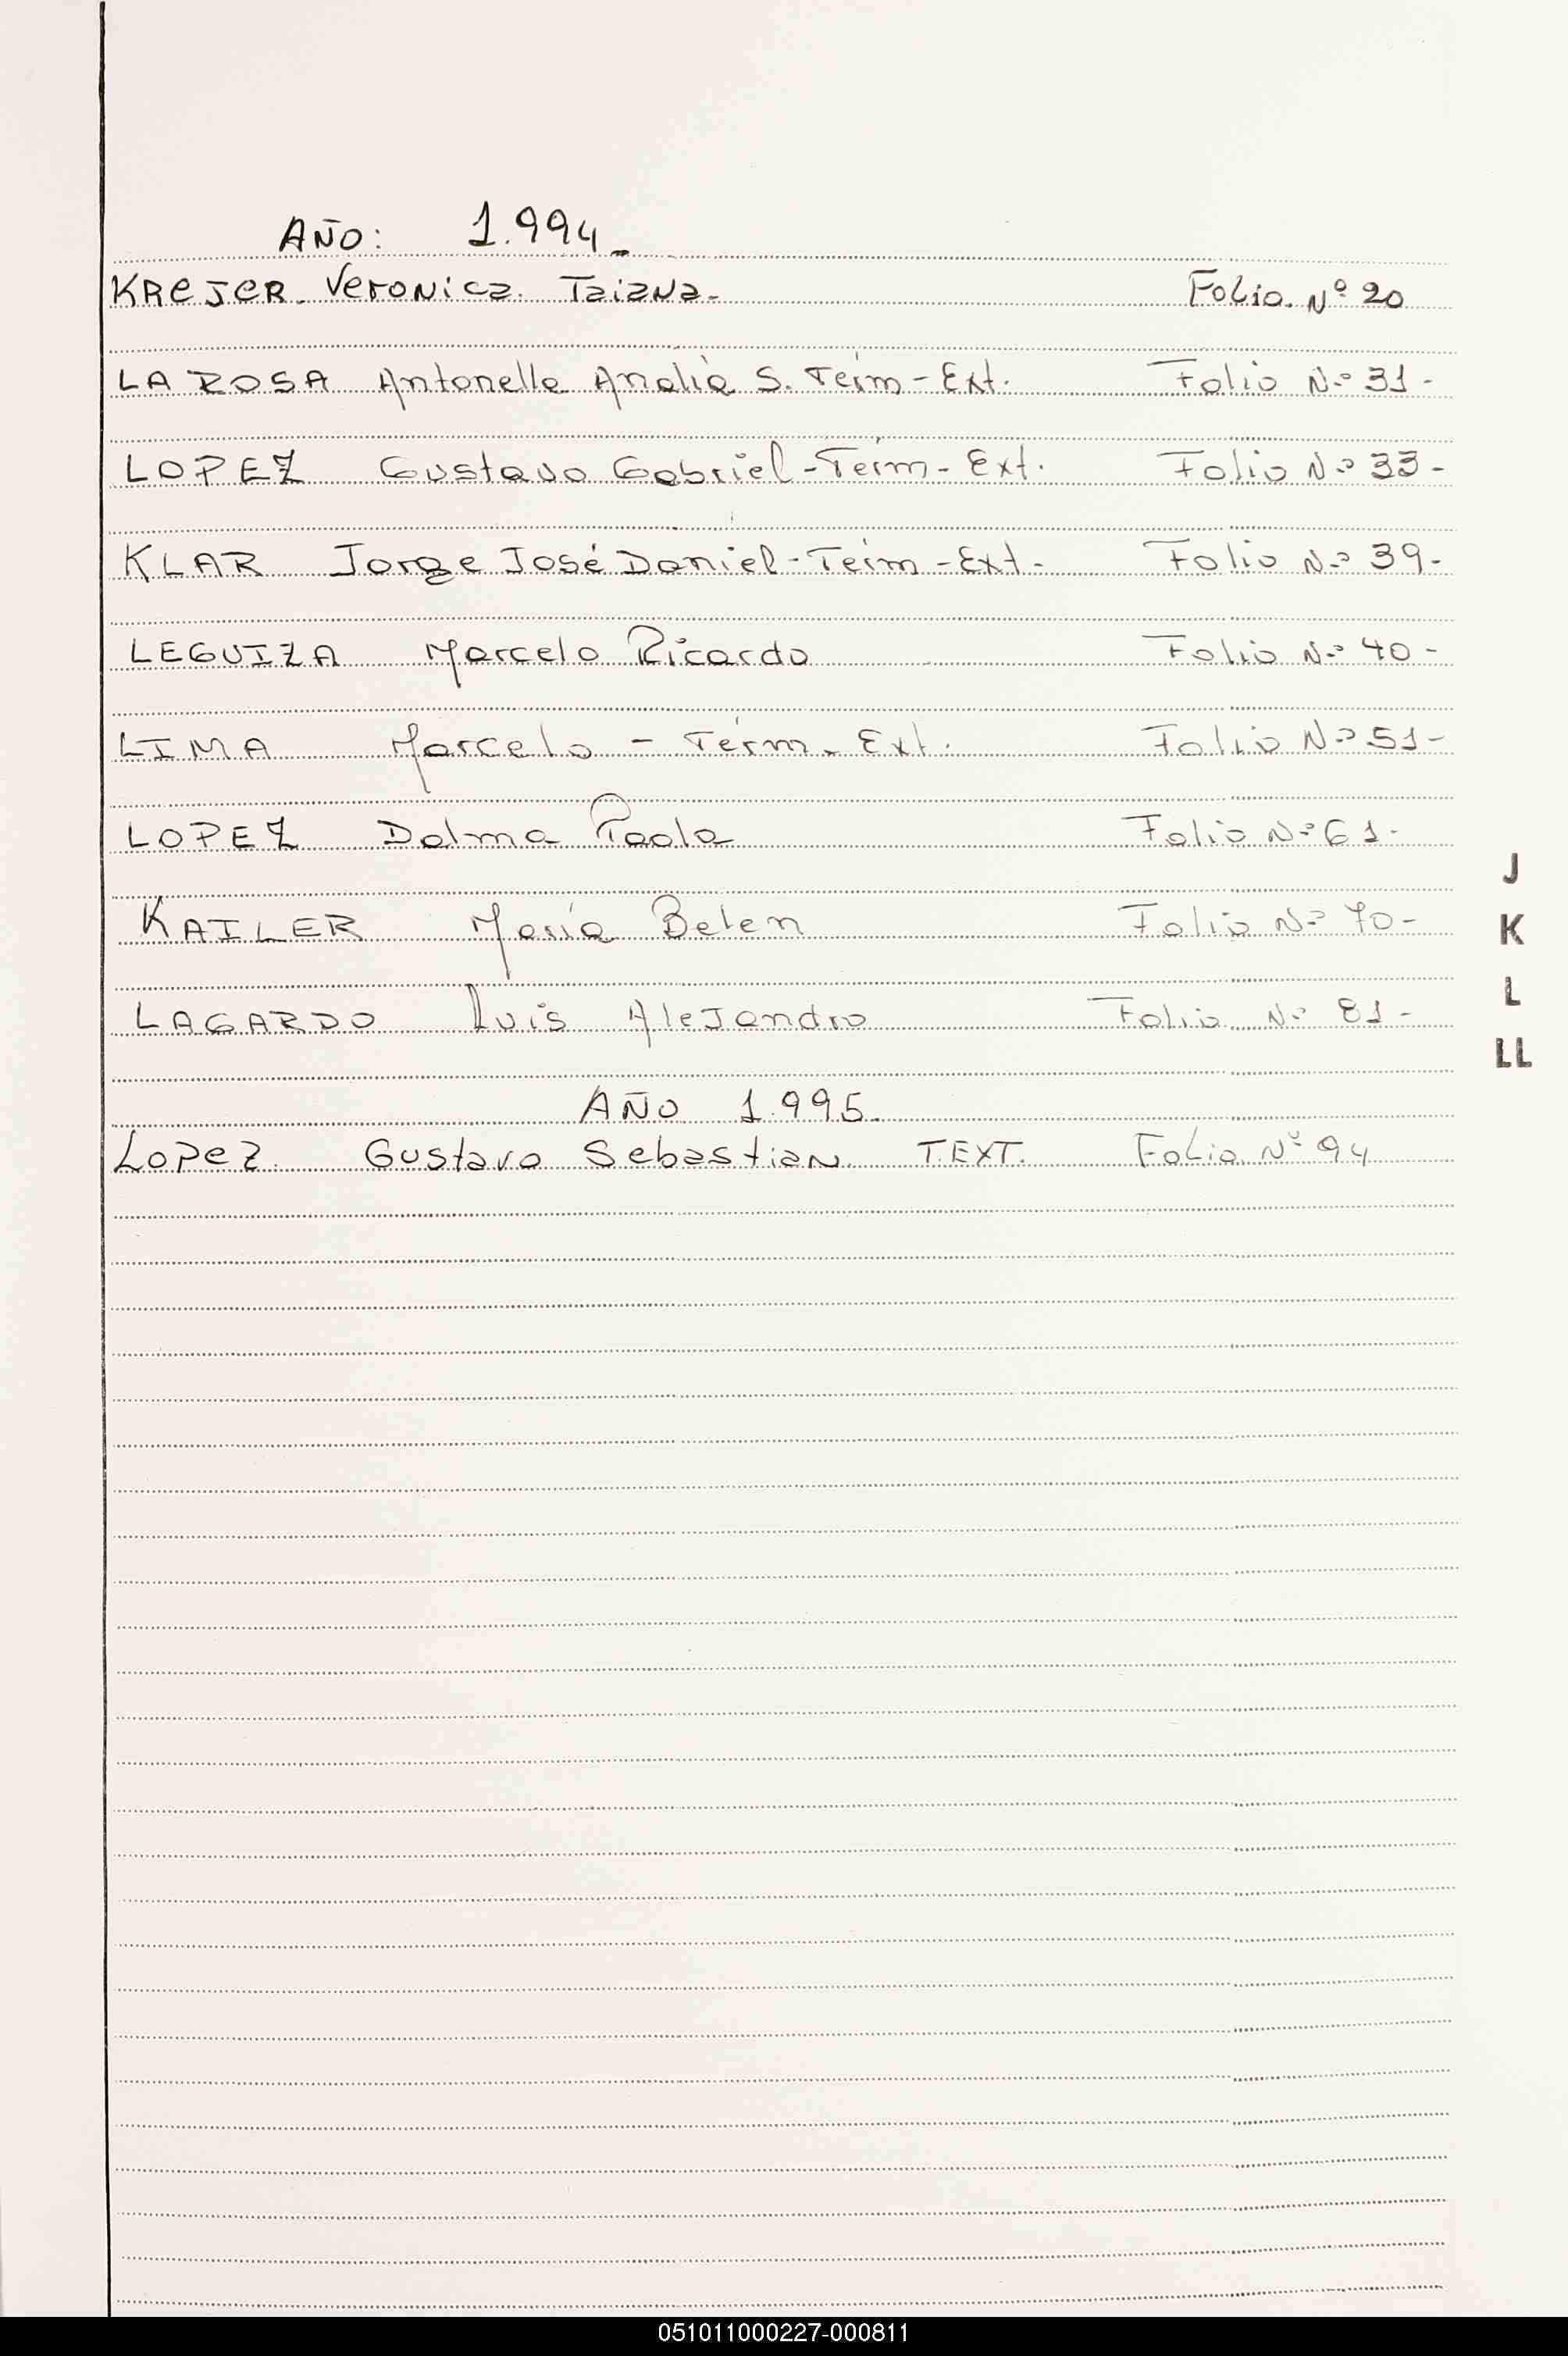 AÑO: 1.994_
KREJER. Veronica. Taiana.
Folio. Nº 20
LA ROSA Antonella Analía S. Térm-Ext.
Folio Nº 31-
LOPEZ Gustavo Gabriel-Térm-Ext.
Folio Nº 33-
KLAR Jorge José Daniel-Térm-Ext-
Folio Nº 39-
LEGUIZA Marcelo Ricardo
Folio Nº 40-
LIMA Marcelo - Térm. Ext.
Folio Nº 51-
LOPEZ Dalma Paola
Folio Nº 61-
KAILER María Belen
Folio Nº 70-
LAGARDO Luis Alejandro
Folio Nº 81-
AÑO 1.995.
Lopez Gustavo Sebastian T.EXT.
Folio Nº 94
J
K
L
LL
051011000227-000811